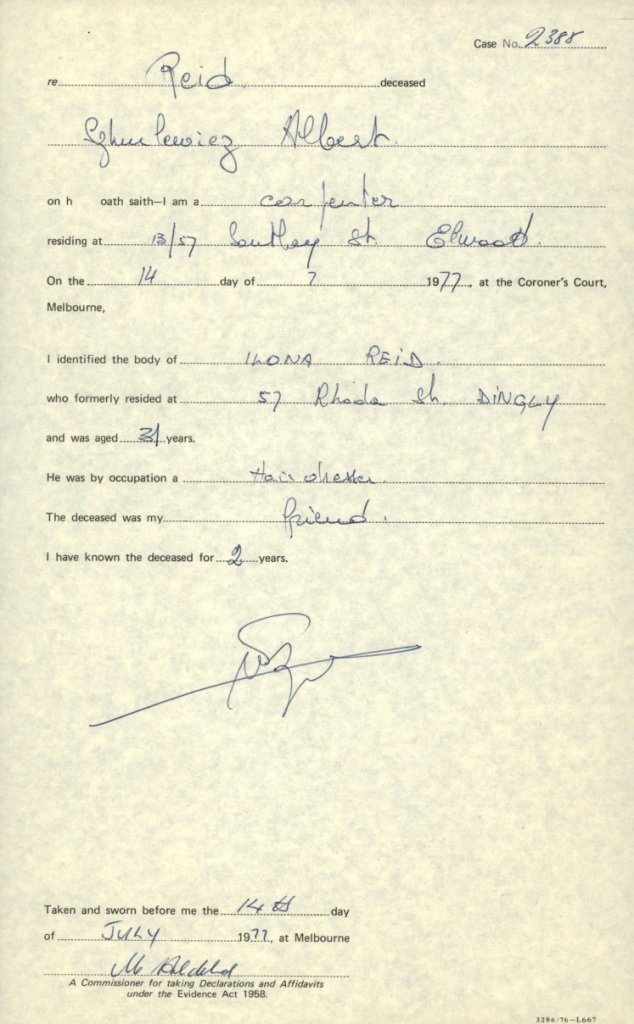 Case No. 2388
re Reid. deceased
Szhulewicz Albert.
on h oath saith—I am a carpenter
residing at 13/57 Southey St. Elwood.
On the 14 day of 7 1977, at the Coroner's Court,
Melbourne,
I identified the body of ILONA REID.
who formerly resided at 57 Rhoda St. DINGLY
and was aged 31 years.
He was by occupation a Hairdresser.
The deceased was my friend.
I have known the deceased for 2 years.
Taken and sworn before me the 14th day
of JULY 1977, at Melbourne
A Commissioner for taking Declarations and Affidavits
under the Evidence Act 1958.
3286/76—L667